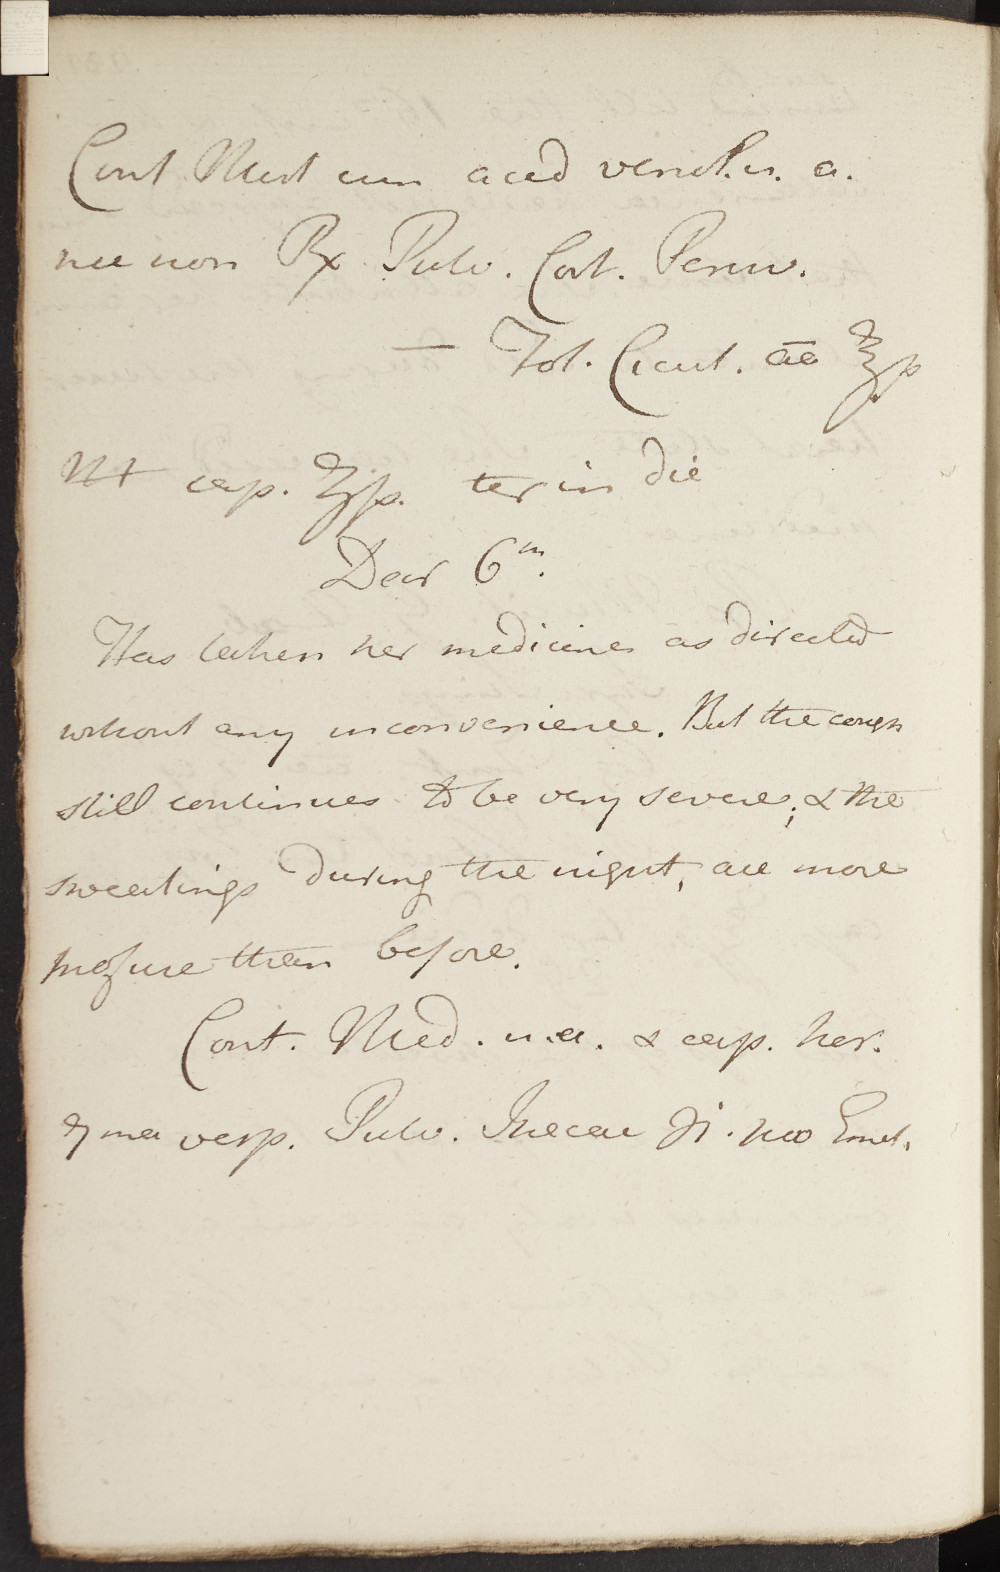 Cont. Mist cum acid vitriol. u. a.
nec non ℞ Pulv. Cort. Peruv.
— Fol. Cicut. āā ʒſs
Mt cap. ʒſs. ter in die
Decr 6th.
Has taken her medicines as directed
without any inconvenience. But the cough
still continues to be very severe; & the
sweatings during the night, are more
profuse than before.
Cont. Med. u.a. & cap. hor.
7ma vesp. Pulv. Ipecac ℈i. pro Emet.